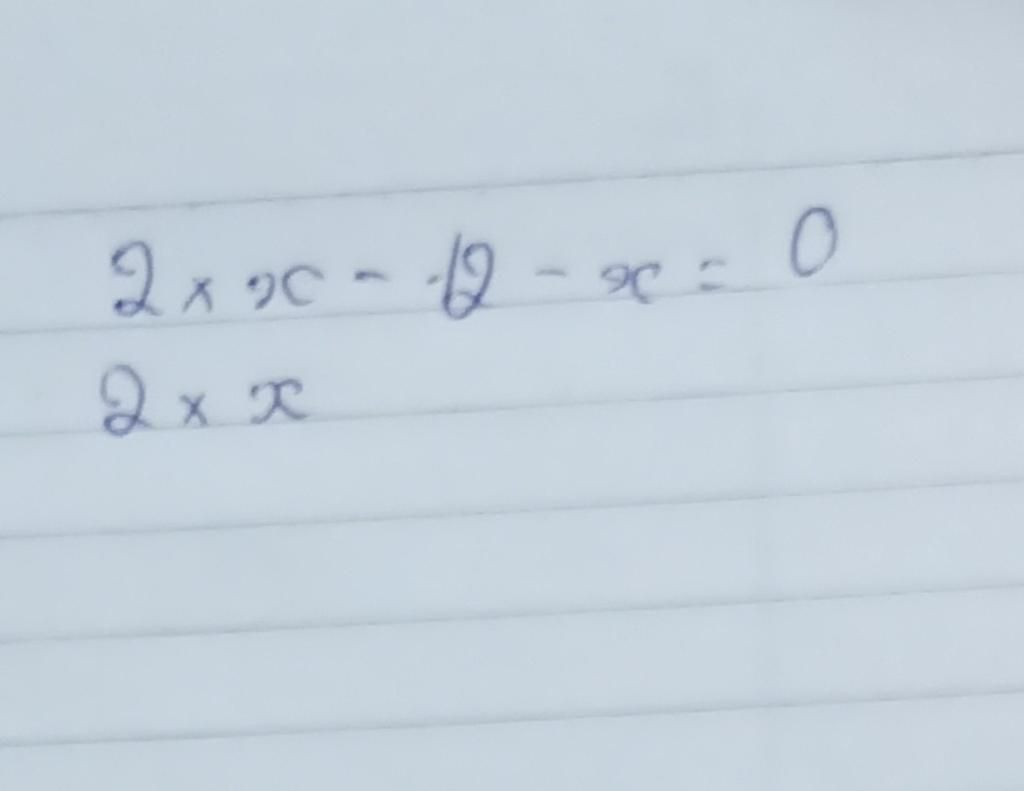 2 × x - 12 - x = 0
2 × x